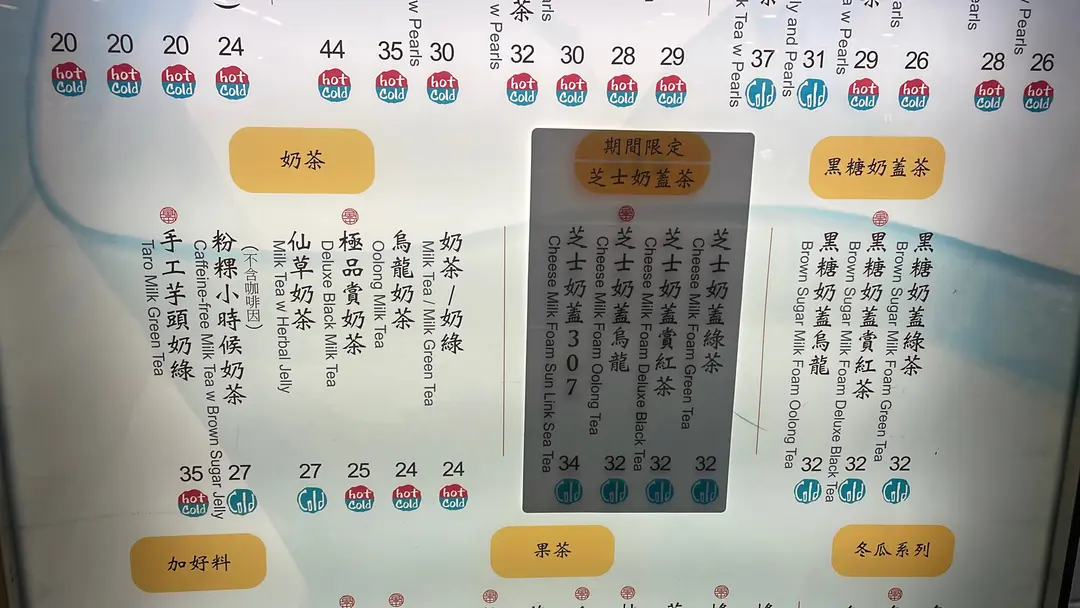 w Pearls
茶
arls
w Pearls
k Tea w Pearls
ly and Pearls
a w Pearls
arls
earls
v Pearls
26
hot
Cold
28
hot
Cold
26
hot
Cold
29
hot
Cold
31
Cold
37
Cold
29
hot
Cold
28
hot
Cold
30
hot
Cold
32
hot
Cold
30
hot
Cold
35
hot
Cold
44
hot
Cold
24
hot
Cold
20
hot
Cold
20
hot
Cold
20
hot
Cold
黑糖奶蓋茶
黑糖奶蓋綠茶
Brown Sugar Milk Foam Green Tea
32
Cold
黑糖奶蓋賞紅茶
Brown Sugar Milk Foam Deluxe Black Tea
32
Cold
黑糖奶蓋烏龍
Brown Sugar Milk Foam Oolong Tea
32
Cold
期間限定
芝士奶蓋茶
芝士奶蓋綠茶
Cheese Milk Foam Green Tea
32
Cold
芝士奶蓋賞紅茶
Cheese Milk Foam Deluxe Black Tea
32
Cold
芝士奶蓋烏龍
Cheese Milk Foam Oolong Tea
32
Cold
芝士奶蓋307
Cheese Milk Foam Sun Link Sea Tea
34
Cold
奶茶
奶茶/奶綠
Milk Tea / Milk Green Tea
24
hot
Cold
烏龍奶茶
Oolong Milk Tea
24
hot
Cold
極品賞奶茶
Deluxe Black Milk Tea
25
hot
Cold
仙草奶茶
Milk Tea w Herbal Jelly
27
Cold
(不含咖啡因)
粉粿小時候奶茶
Caffeine-free Milk Tea w Brown Sugar Jelly
27
Cold
手工芋頭奶綠
Taro Milk Green Tea
35
hot
Cold
冬瓜系列
果茶
加好料